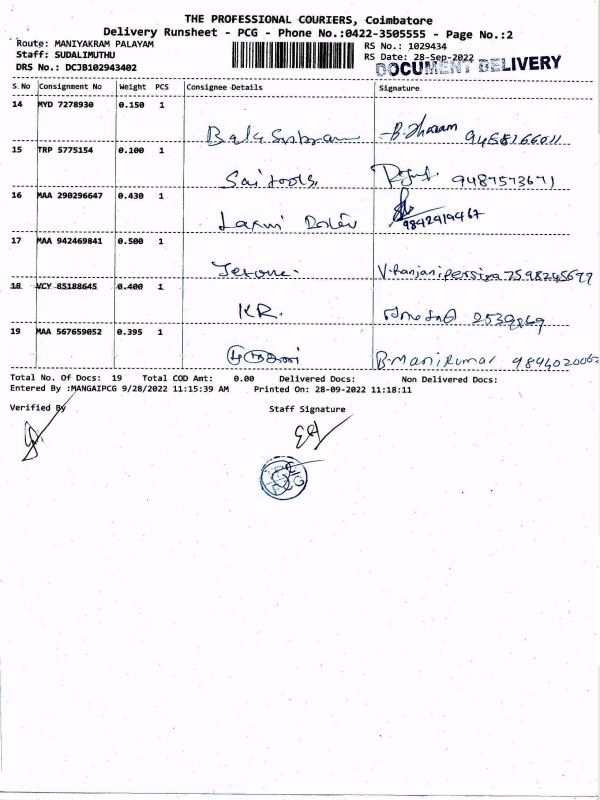 THE PROFESSIONAL COURIERS, Coimbatore
Delivery Runsheet - PCG - Phone No.:0422-3505555 - Page No.:2
Route: MANIYAKRAM PALAYAM
RS No.: 1029434
Staff: SUDALIMUTHU
RS Date: 28-Sep-2022
DRS No.: DCJB102943402
DOCUMENT DELIVERY
S.No Consignment No Weight PCS Consignee Details Signature
14 MYD 7278930 0.150 1
B. Dharam 9458166011
15 TRP 5775154 0.100 1
Sai tools. 9487573671
16 MAA 290296647 0.430 1
Laxmi 9842919467
17 MAA 942469841 0.500 1
Jerone. V. Ranjani persiya 7598245699
18 VCY 85188645 0.400 1
KR. 2539269
19 MAA 567659052 0.395 1
B. Mani Kumar 984402006
Total No. Of Docs: 19 Total COD Amt: 0.00 Delivered Docs: Non Delivered Docs:
Entered By :MANGAIPCG 9/28/2022 11:15:39 AM Printed On: 28-09-2022 11:18:11
Verified By Staff Signature